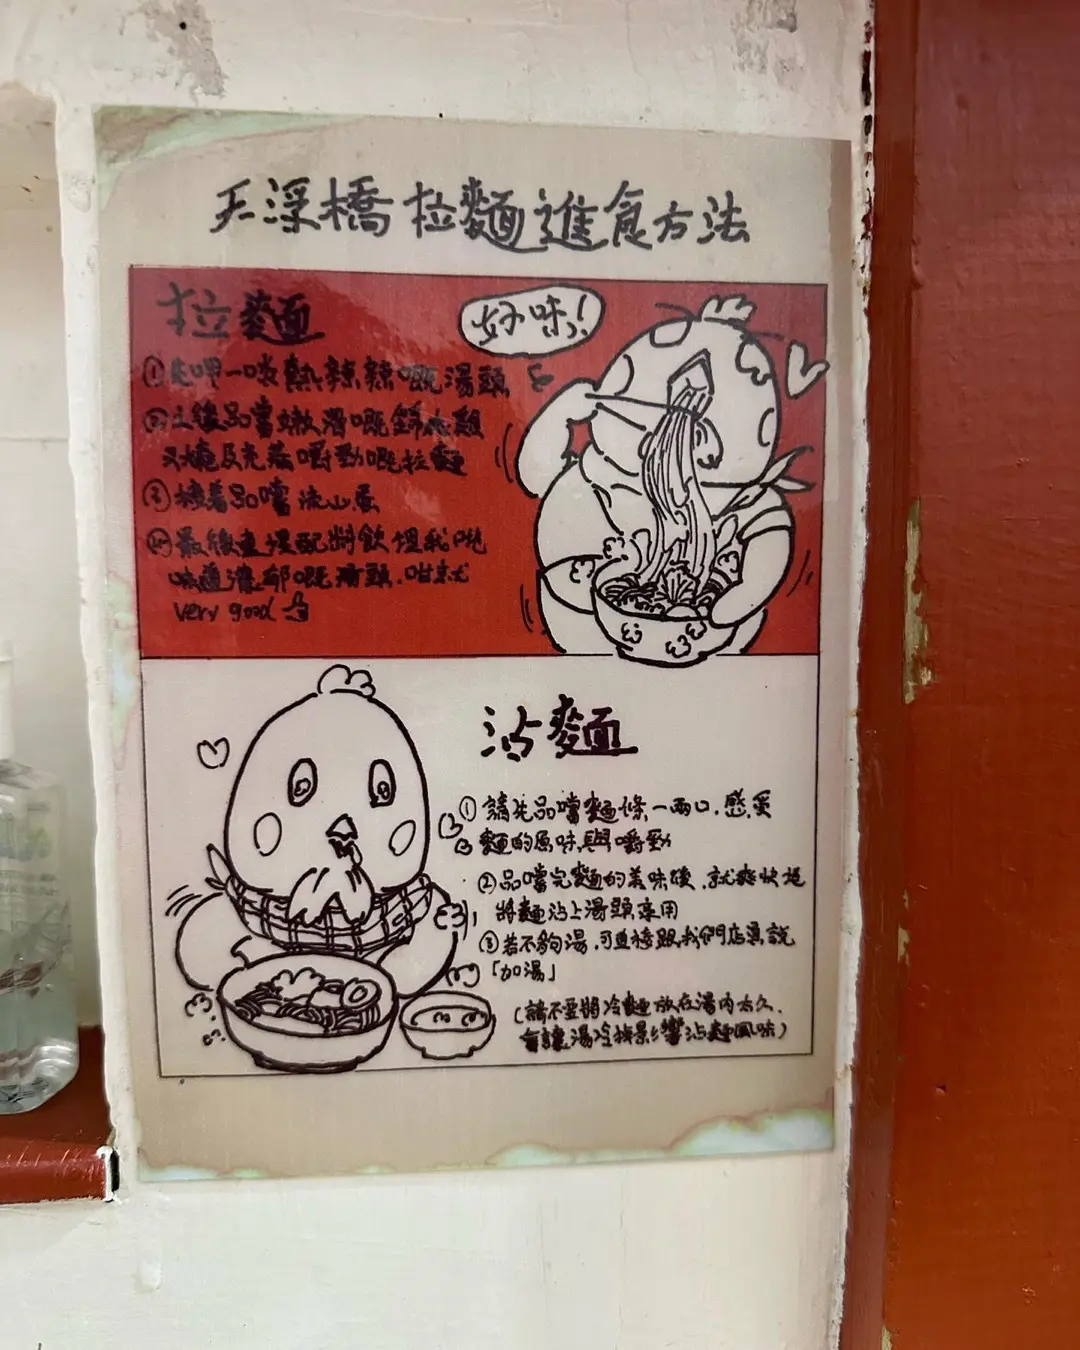 天深橋拉麵進食方法
拉麵
好味!
①先呷一啖熱辣辣嘅湯頭
②之後品嚐嫩滑嘅雞
叉燒及充滿嚼勁嘅拉麵
③接著品嚐流心蛋
④最後直接配將飲埋我哋
味道濃郁嘅湯頭.咁就
very good
沾麵
①請先品嚐麵條一兩口.感受
麵的原味與嚼勁
②品嚐完麵的美味後.就爽快地
將麵沾上湯頭享用
③若不夠湯.可直接跟我們店員說
「加湯」
(請不要將冷麵放在湯內太久.
會讓湯冷掉影響沾麵風味)